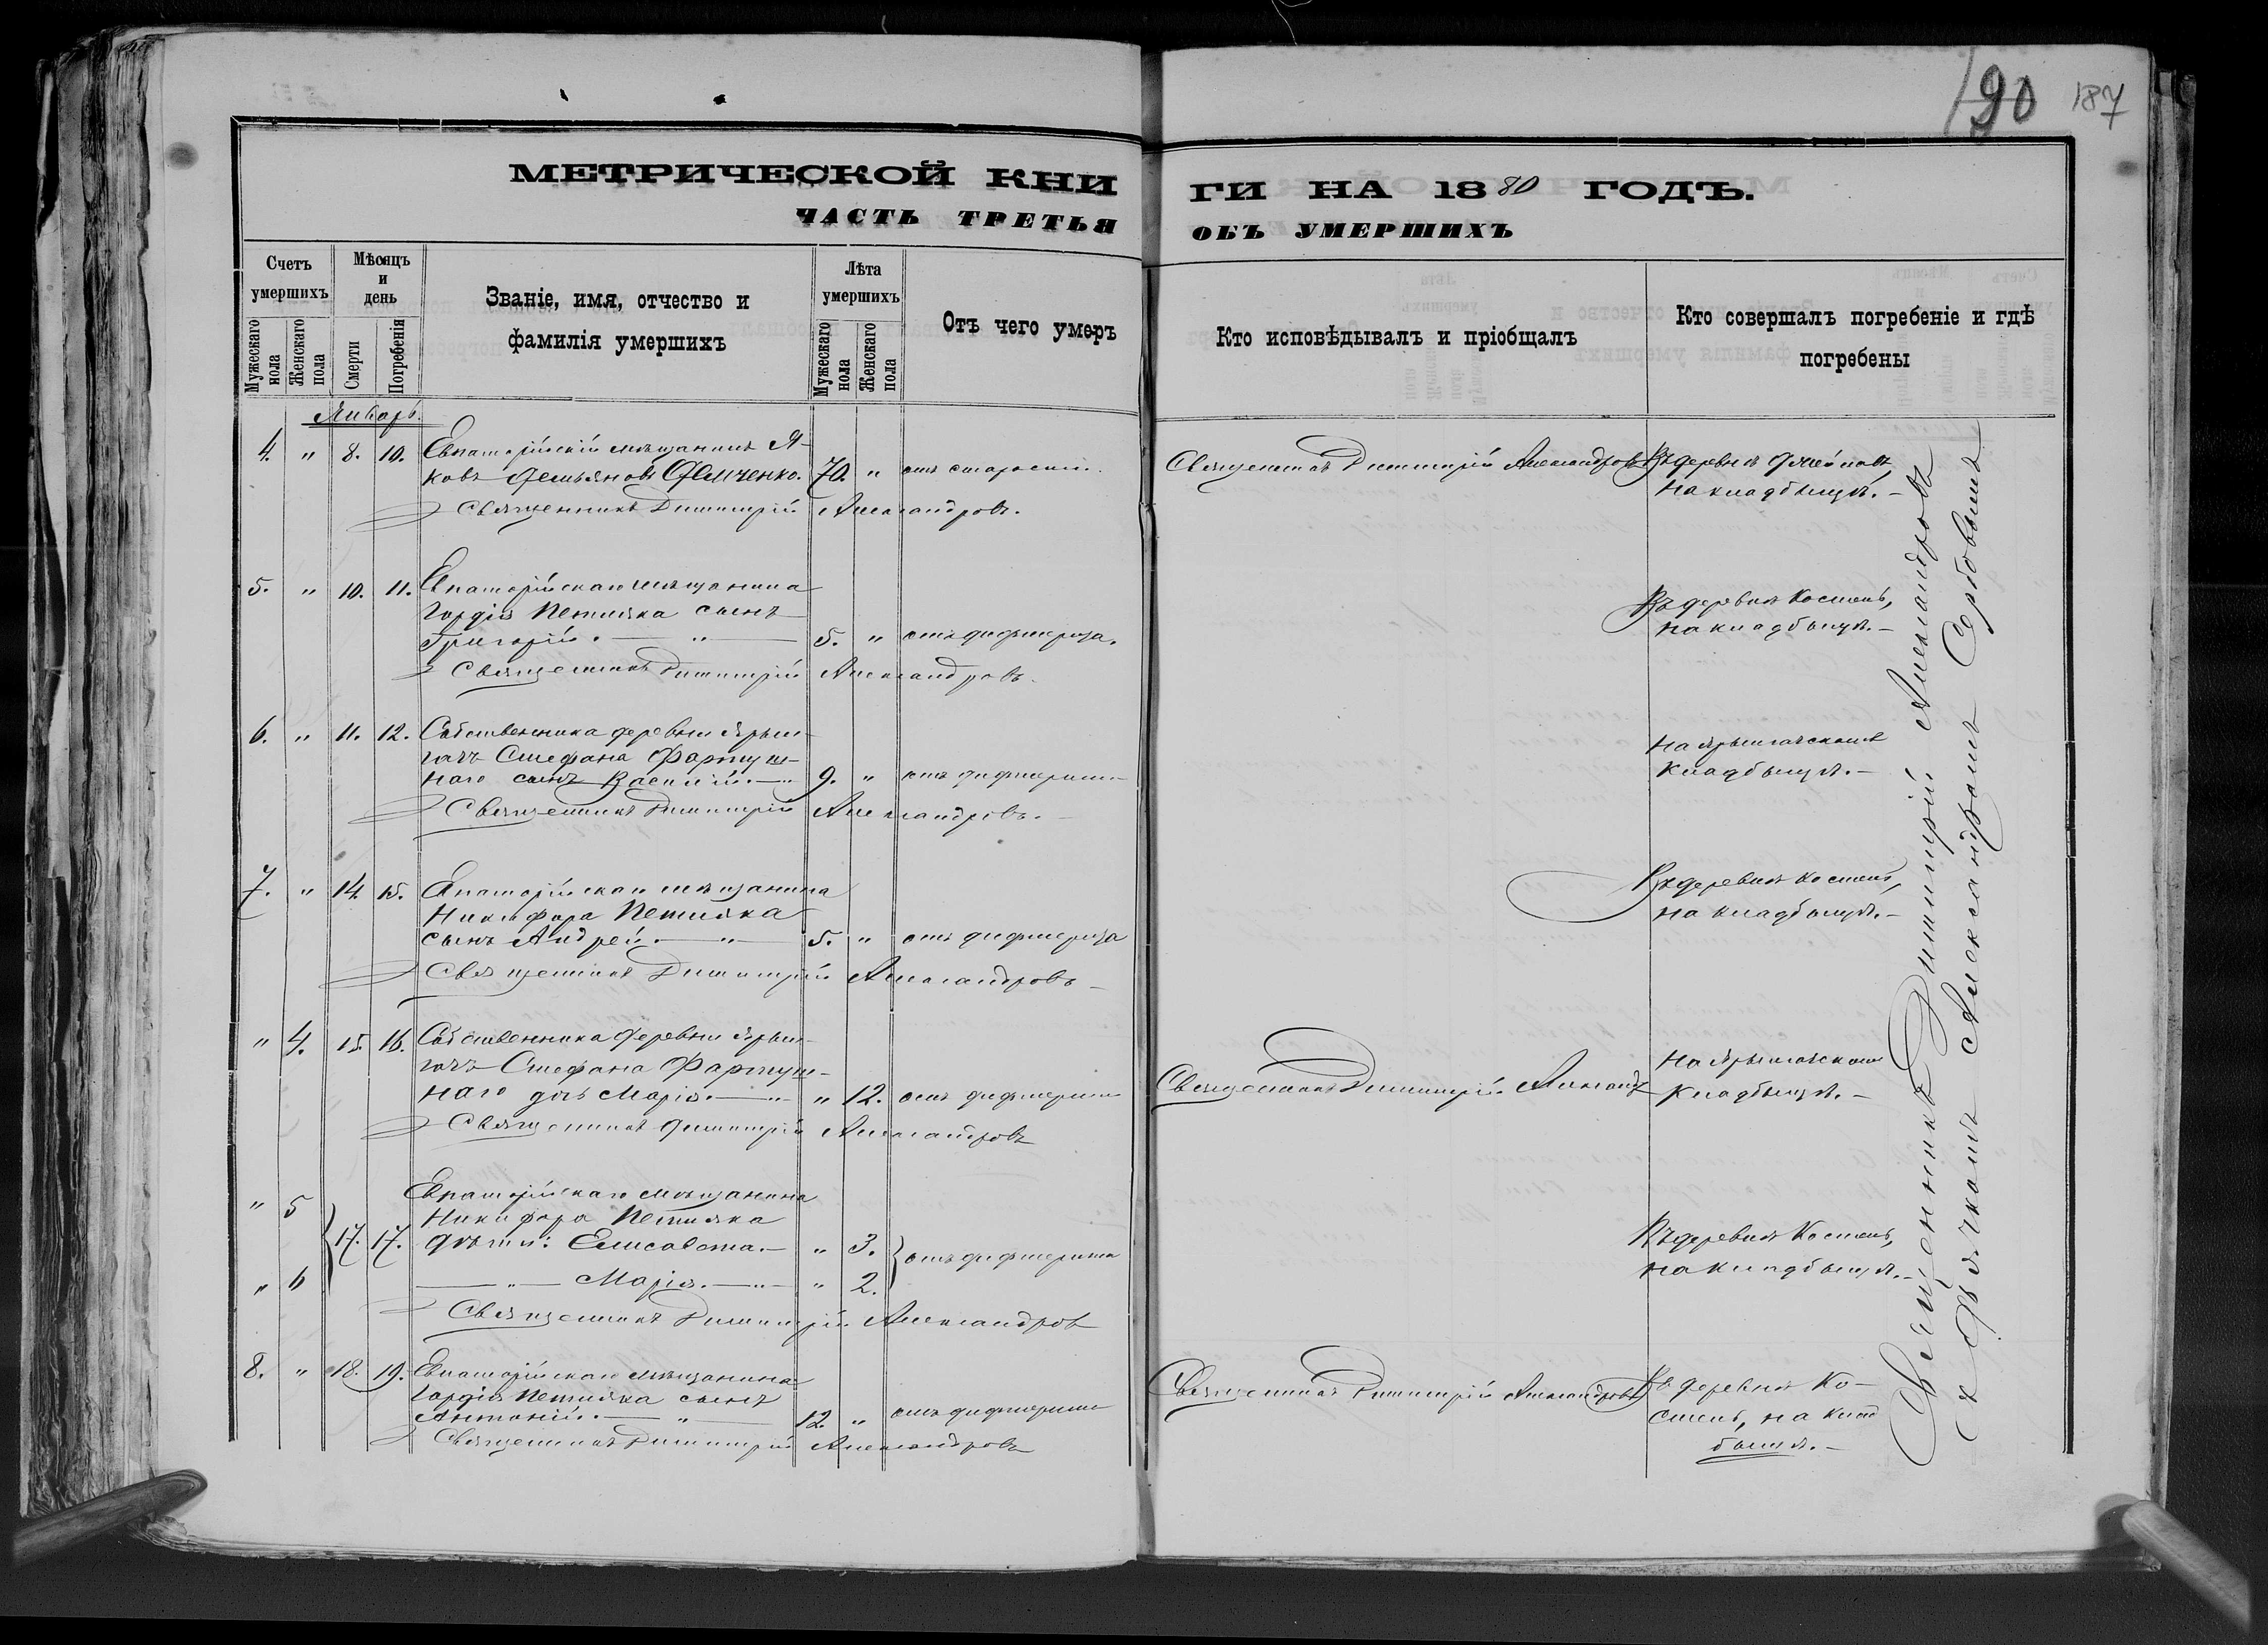 190 187
МЕТРИЧЕСКОЙ КНИ
ЧАСТЬ ТРЕТЬЯ
Счетъ умершихъ
Мужескаго пола
Женскаго пола
Мѣсяцъ и день
Смерти
Погребенія
Званіе, имя, отчество и
фамилія умершихъ
Лѣта умершихъ
Мужескаго пола
Женскаго пола
Отъ чего умеръ
Январь.
4. " 8. 10. Евпаторійскій мѣщанинъ Я-
ковъ Демьяновъ Демченко. 70. " отъ старости.
Священникъ Димитрій Александровъ.
5. " 10. 11. Евпаторійскаго мѣщанина
Гордія Петляка сынъ
Григорій. — " — 5. " отъ дифтерита.
Священникъ Димитрій Александровъ.
6. " 11. 12. Собственника деревни Ярыл-
гачъ Стефана Фартуш-
наго сынъ Василій. — " 9. " отъ дифтерита
Священникъ Димитрій Александровъ.
7. " 14. 15. Евпаторійскаго мѣщанина
Никифора Петляка
сынъ Андрей. — " — 5. " отъ дифтерита
Священникъ Димитрій Александровъ
" 4. 15. 16. Собственника деревни Ярыл-
гачъ Стефана Фартуш-
наго дочь Марія. — " " 12. отъ дифтерита
Священникъ Димитрій Александровъ
" 5 Евпаторійскаго мѣщанина
Никифора Петляка
17. 17. дѣти: Елисавета. — " 3. отъ дифтерита
" 6 — " — Марія. — " — " 2.
Священникъ Димитрій Александровъ
8. " 18. 19. Евпаторійскаго мѣщанина
Гордія Петляка сынъ
Антоній. — " — 12. " отъ дифтерита
Священникъ Димитрій Александровъ
ГИ НА 1880 ГОДЪ.
ОБЪ УМЕРШИХЪ
Кто исповѣдывалъ и пріобщалъ
Кто совершалъ погребеніе и гдѣ
погребены
Священникъ Димитрій Александровъ Въ деревнѣ
на кладбищѣ. —
Въ деревнѣ Костень,
на кладбищѣ. —
На Ярылгачскомъ
кладбищѣ. —
Въ деревнѣ Костень,
на кладбищѣ. —
На Ярылгачскомъ
Священникъ Димитрій Александ кладбищѣ. —
Въ деревнѣ Костень,
на кладбищѣ. —
Священникъ Димитрій Александровъ Въ деревнѣ Ко-
стень, на клад
бищѣ. —
Священникъ Димитрій Александровъ
съ Дьячкомъ Александромъ